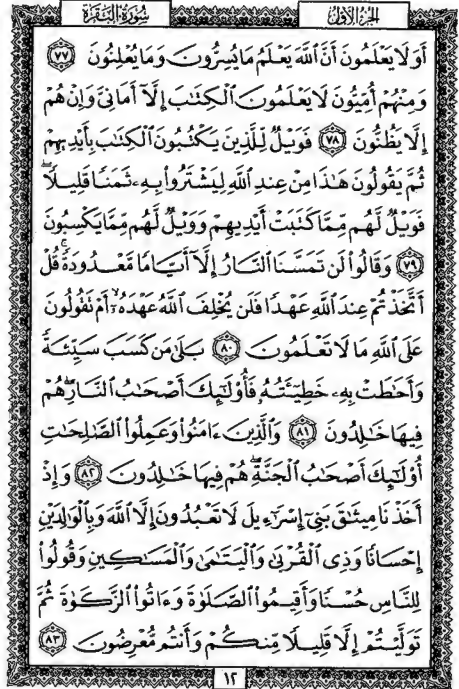 الجزء الأول
سورة البقرة
أَوَلَا يَعْلَمُونَ أَنَّ ٱللَّهَ يَعْلَمُ مَا يُسِرُّونَ وَمَا يُعْلِنُونَ ٧٧
وَمِنْهُمْ أُمِّيُّونَ لَا يَعْلَمُونَ ٱلْكِتَٰبَ إِلَّآ أَمَانِىَّ وَإِنْ هُمْ
إِلَّا يَظُنُّونَ ٧٨ فَوَيْلٌ لِّلَّذِينَ يَكْتُبُونَ ٱلْكِتَٰبَ بِأَيْدِيهِمْ
ثُمَّ يَقُولُونَ هَٰذَا مِنْ عِندِ ٱللَّهِ لِيَشْتَرُوا۟ بِهِۦ ثَمَنًا قَلِيلًاۖ
فَوَيْلٌ لَّهُم مِّمَّا كَتَبَتْ أَيْدِيهِمْ وَوَيْلٌ لَّهُم مِّمَّا يَكْسِبُونَ
٧٩ وَقَالُوا۟ لَن تَمَسَّنَا ٱلنَّارُ إِلَّآ أَيَّامًا مَّعْدُودَةًۚ قُلْ
أَتَّخَذْتُمْ عِندَ ٱللَّهِ عَهْدًا فَلَن يُخْلِفَ ٱللَّهُ عَهْدَهُۥٓۖ أَمْ تَقُولُونَ
عَلَى ٱللَّهِ مَا لَا تَعْلَمُونَ ٨٠ بَلَىٰ مَن كَسَبَ سَيِّئَةً
وَأَحَٰطَتْ بِهِۦ خَطِيٓـَٔتُهُۥ فَأُو۟لَٰٓئِكَ أَصْحَٰبُ ٱلنَّارِۖ هُمْ
فِيهَا خَٰلِدُونَ ٨١ وَٱلَّذِينَ ءَامَنُوا۟ وَعَمِلُوا۟ ٱلصَّٰلِحَٰتِ
أُو۟لَٰٓئِكَ أَصْحَٰبُ ٱلْجَنَّةِۖ هُمْ فِيهَا خَٰلِدُونَ ٨٢ وَإِذْ
أَخَذْنَا مِيثَٰقَ بَنِىٓ إِسْرَٰٓءِيلَ لَا تَعْبُدُونَ إِلَّا ٱللَّهَ وَبِٱلْوَٰلِدَيْنِ
إِحْسَانًا وَذِى ٱلْقُرْبَىٰ وَٱلْيَتَٰمَىٰ وَٱلْمَسَٰكِينِ وَقُولُوا۟
لِلنَّاسِ حُسْنًا وَأَقِيمُوا۟ ٱلصَّلَوٰةَ وَءَاتُوا۟ ٱلزَّكَوٰةَ ثُمَّ
تَوَلَّيْتُمْ إِلَّا قَلِيلًا مِّنكُمْ وَأَنتُم مُّعْرِضُونَ ٨٣
١٢